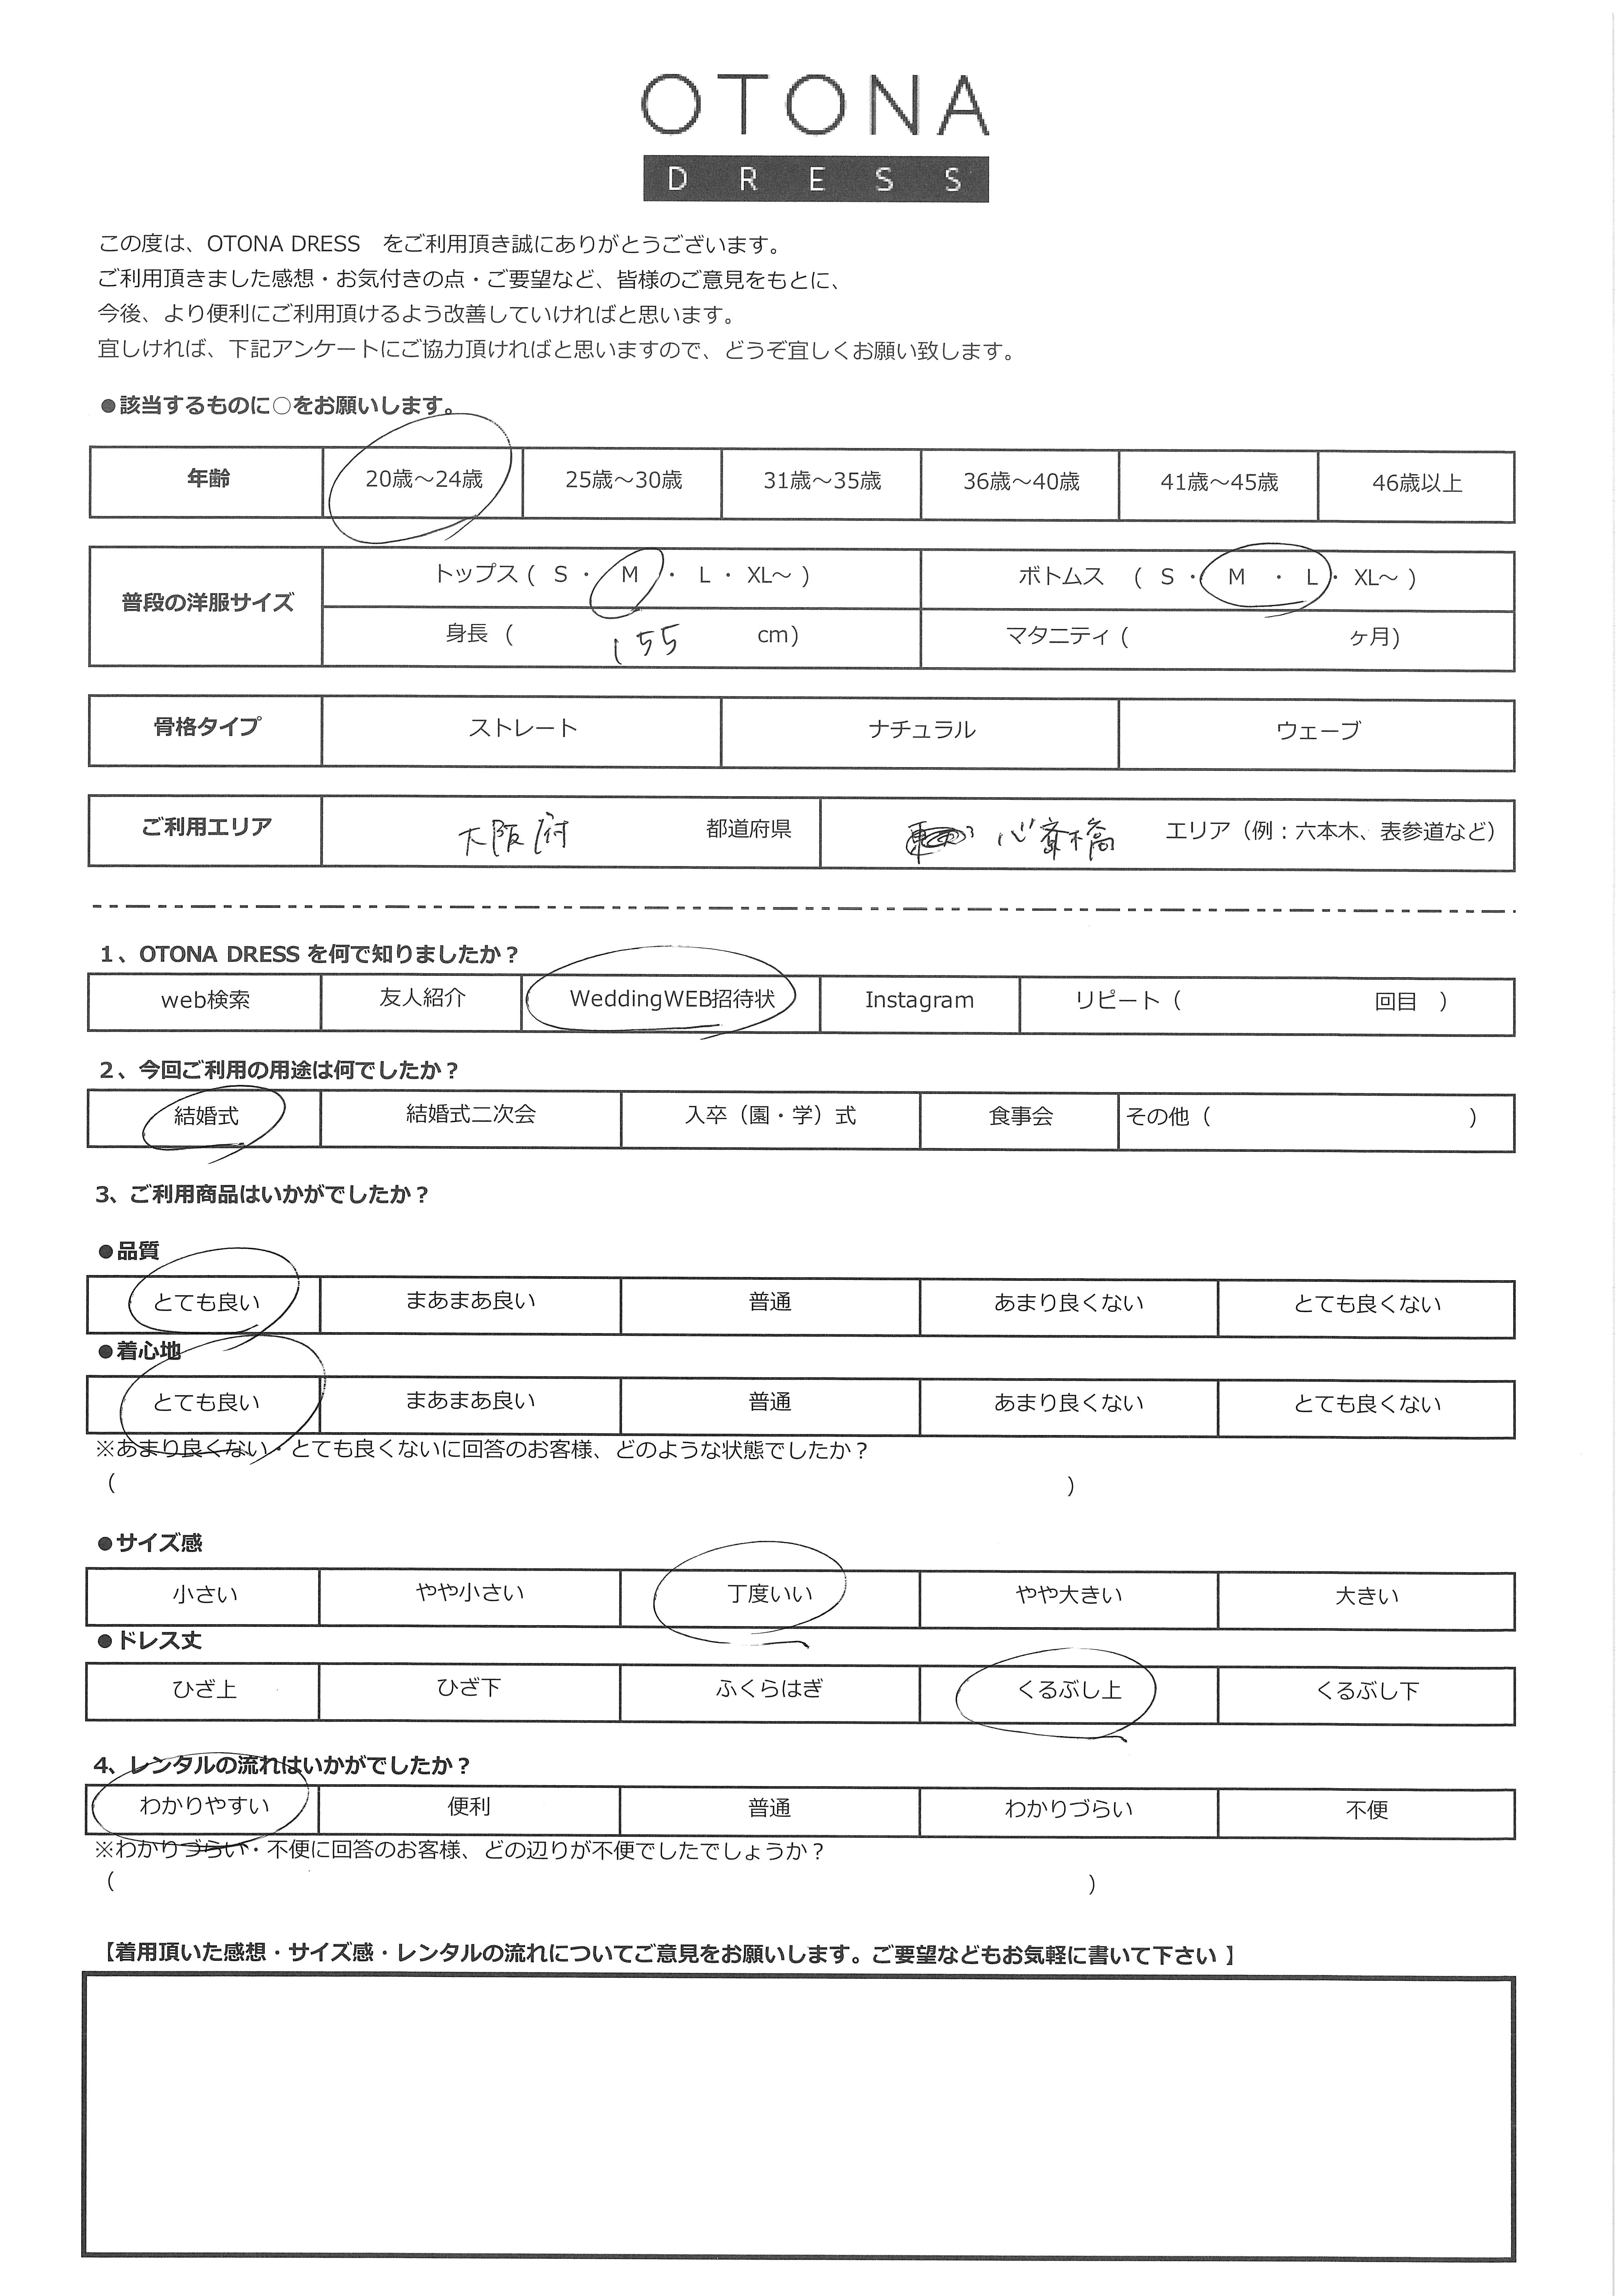 OTONA
DRESS
この度は、OTONA DRESS　をご利用頂き誠にありがとうございます。
ご利用頂きました感想・お気付きの点・ご要望など、皆様のご意見をもとに、
今後、より便利にご利用頂けるよう改善していければと思います。
宜しければ、下記アンケートにご協力頂ければと思いますので、どうぞ宜しくお願い致します。
●該当するものに○をお願いします。
年齢 20歳～24歳 25歳～30歳 31歳～35歳 36歳～40歳 41歳～45歳 46歳以上
普段の洋服サイズ トップス（ S ・ M ・ L ・ XL～ ） ボトムス （ S ・ M ・ L ・ XL～ ）
身長（ 155 cm） マタニティ（ ヶ月）
骨格タイプ ストレート ナチュラル ウェーブ
ご利用エリア 大阪府 都道府県 心斎橋 エリア（例：六本木、表参道など）
1、OTONA DRESS を何で知りましたか？
web検索 友人紹介 WeddingWEB招待状 Instagram リピート（ 回目 ）
2、今回ご利用の用途は何でしたか？
結婚式 結婚式二次会 入卒（園・学）式 食事会 その他（ ）
3、ご利用商品はいかがでしたか？
●品質
とても良い まあまあ良い 普通 あまり良くない とても良くない
●着心地
とても良い まあまあ良い 普通 あまり良くない とても良くない
※あまり良くない・とても良くないに回答のお客様、どのような状態でしたか？
（ ）
●サイズ感
小さい やや小さい 丁度いい やや大きい 大きい
●ドレス丈
ひざ上 ひざ下 ふくらはぎ くるぶし上 くるぶし下
4、レンタルの流れはいかがでしたか？
わかりやすい 便利 普通 わかりづらい 不便
※わかりづらい・不便に回答のお客様、どの辺りが不便でしたでしょうか？
（ ）
【着用頂いた感想・サイズ感・レンタルの流れについてご意見をお願いします。ご要望などもお気軽に書いて下さい 】